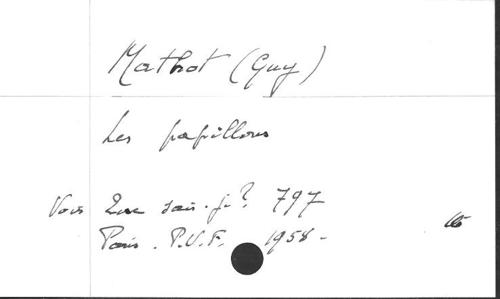 Mathot (Guy)
Les papillons
Voir Que sais-je? 797
Paris. P.U.F. 1958 -